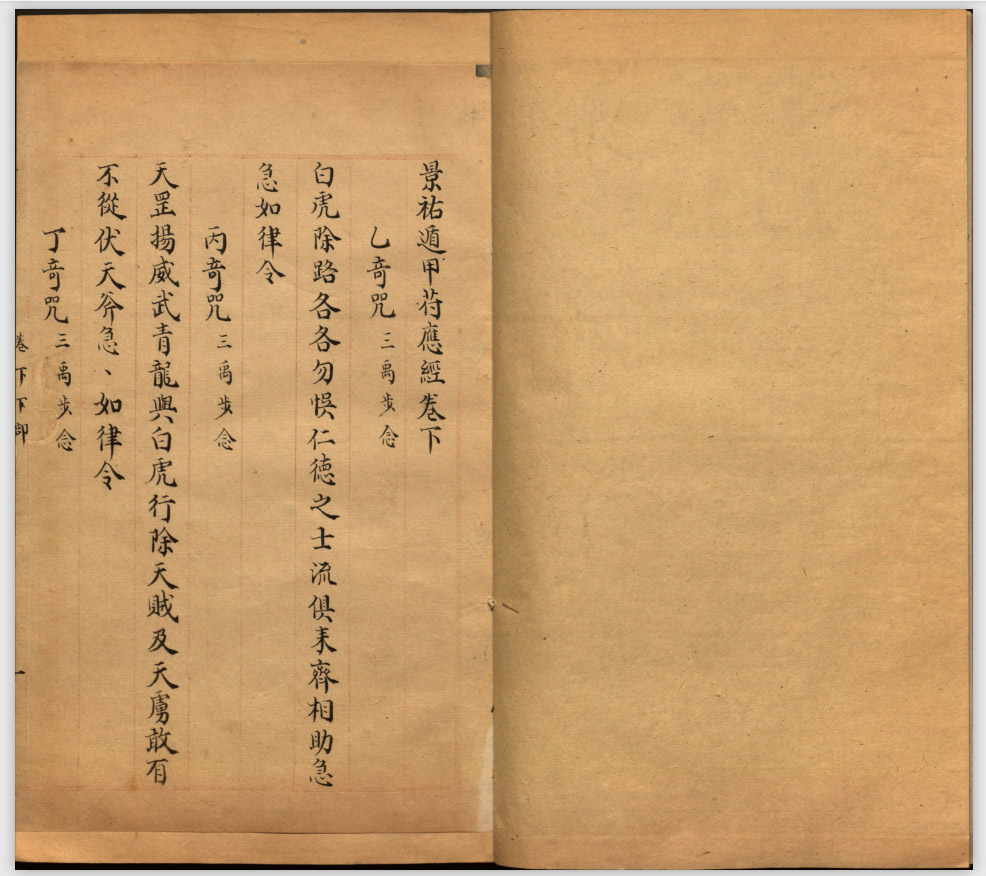 景祐遁甲苻應經卷下
乙竒咒 三禹步念
白虎除路各各勿悞仁德之士流俱耒齊相助急
急如律令
丙竒咒 三禹步念
天罡揚威武青龍與白虎行除天賊及天虜敢有
不從伏天斧急、如律令
丁竒咒 三禹步念
卷下下 一